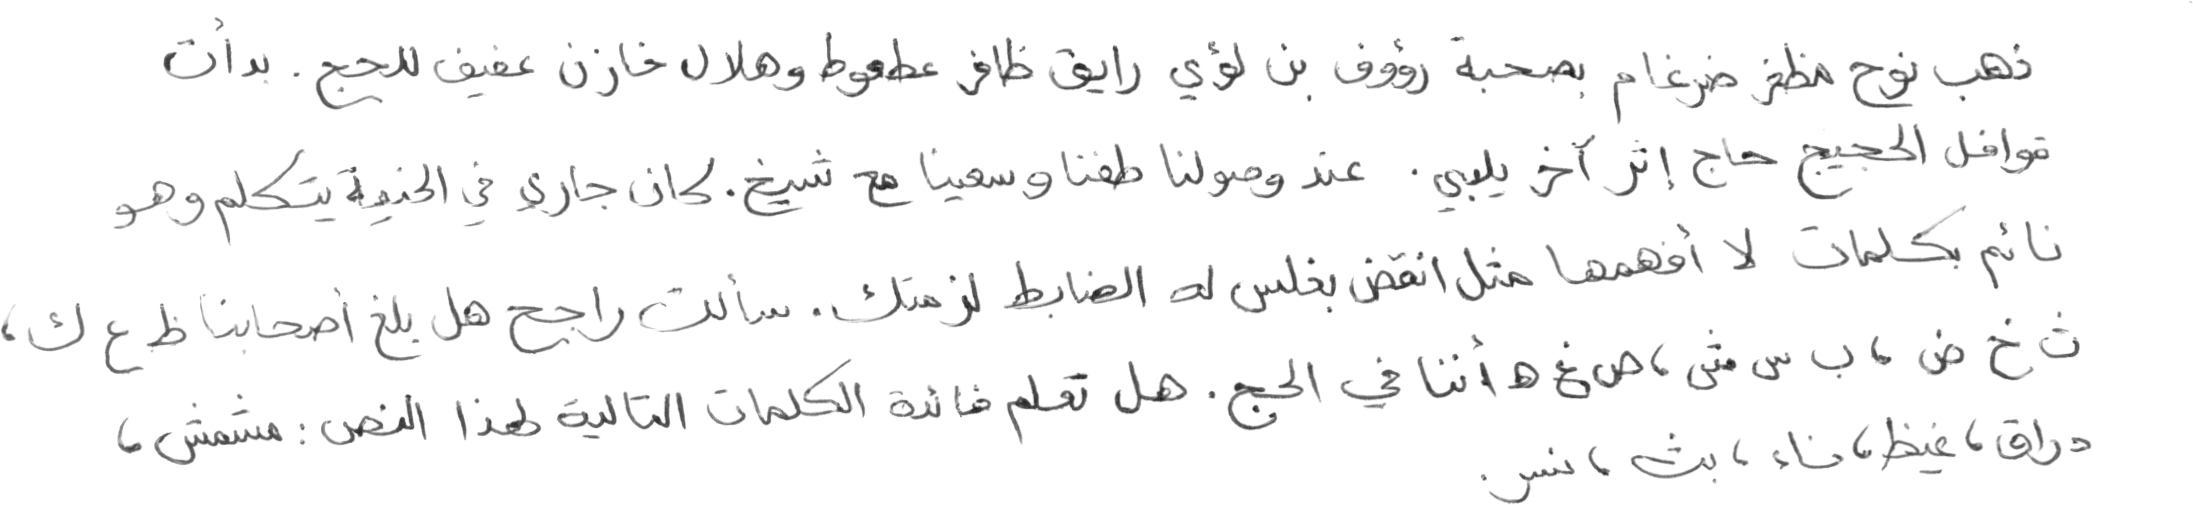 ذهب نوح مظفر ضرغام بصحبة رؤوف بن لؤي رايق ظافر عطعوط وهلال خازن عفيف للحج. بدأت
قوافل الحجيج حاج إثر آخر يلبي. عند وصولنا طفنا وسعينا مع شيخ. كان جاري في الخيمة يتكلم وهو
نائم بكلمات لا أفهمها مثل انقض بغلس له الضابط لزمتك. سألت راجح هل بلغ أصحابنا ظ ع ك،
ث خ ض، ب س ش، ص غ ه أننا في الحج. هل تعلم فائدة الكلمات التالية لهذا النص: مشمش،
دراق، غيظ، ناء، بث، نس.